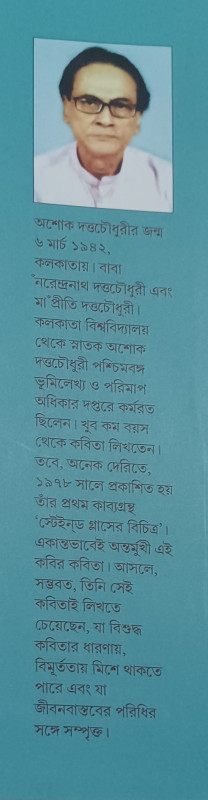 অশোক দত্তচৌধুরীর জন্ম
৬ মার্চ ১৯৪২,
কলকাতায়। বাবা
ঁনরেন্দ্রনাথ দত্তচৌধুরী এবং
মা ঁপ্রীতি দত্তচৌধুরী।
কলকাতা বিশ্ববিদ্যালয়
থেকে স্নাতক অশোক
দত্তচৌধুরী পশ্চিমবঙ্গ
ভূমিলেখ্য ও পরিমাপ
অধিকার দপ্তরে কর্মরত
ছিলেন। খুব কম বয়স
থেকে কবিতা লিখতেন।
তবে, অনেক দেরিতে,
১৯৭৮ সালে প্রকাশিত হয়
তাঁর প্রথম কাব্যগ্রন্থ
‘স্টেইন্‌ড গ্লাসের বিচিত্র’।
একান্তভাবেই অন্তর্মুখী এই
কবির কবিতা। আসলে,
সম্ভবত, তিনি সেই
কবিতাই লিখতে
চেয়েছেন, যা বিশুদ্ধ
কবিতার ধারণায়,
বিমূর্ততায় মিশে থাকতে
পারে এবং যা
জীবনবাস্তবের পরিধির
সঙ্গে সম্পৃক্ত।